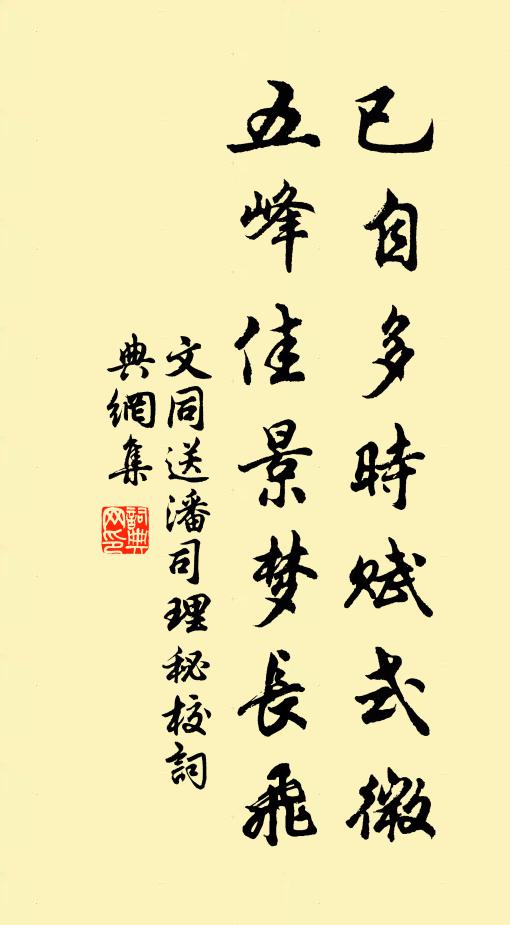 已自多時賦式微
五峰佳景梦長飛
文同送潘司理秘校詞
典網集
詞典
网印